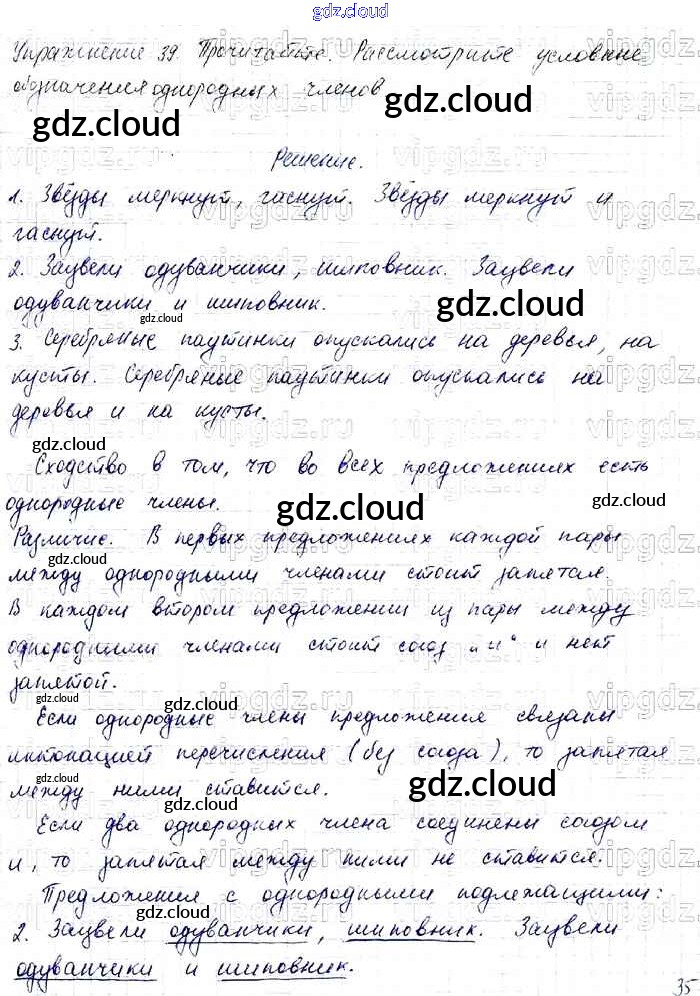 gdz.cloud
Упражнение 39. Прочитайте. Рассмотрите условные
обозначения однородных членов
gdz.cloud
gdz.cloud
Решение.
1. Звёзды меркнут, гаснут. Звёзды меркнут и
гаснут.
2. Зацвели одуванчики, шиповник. Зацвели
одуванчики и шиповник.
gdz.cloud
gdz.cloud
3. Серебряные паутинки опускались на деревья, на
кусты. Серебряные паутинки опускались на
деревья и на кусты.
gdz.cloud
Сходство в том, что во всех предложениях есть
однородные члены.
gdz.cloud
gdz.cloud
Различие. В первых предложениях каждой пары
gdz.cloud
между однородными членами стоит запятая.
В каждом втором предложении из пары между
однородными членами стоит союз „и“ и нет
запятой.
gdz.cloud
gdz.cloud
Если однородные члены предложения связаны
интонацией перечисления (без союза), то запятая
gdz.cloud
между ними ставится.
gdz.cloud
gdz.cloud
Если два однородных члена соединены союзом
и, то запятая между ними не ставится.
Предложения с однородными подлежащими:
gdz.cloud
2. Зацвели одуванчики, шиповник. Зацвели
одуванчики и шиповник.
gdz.cloud
35